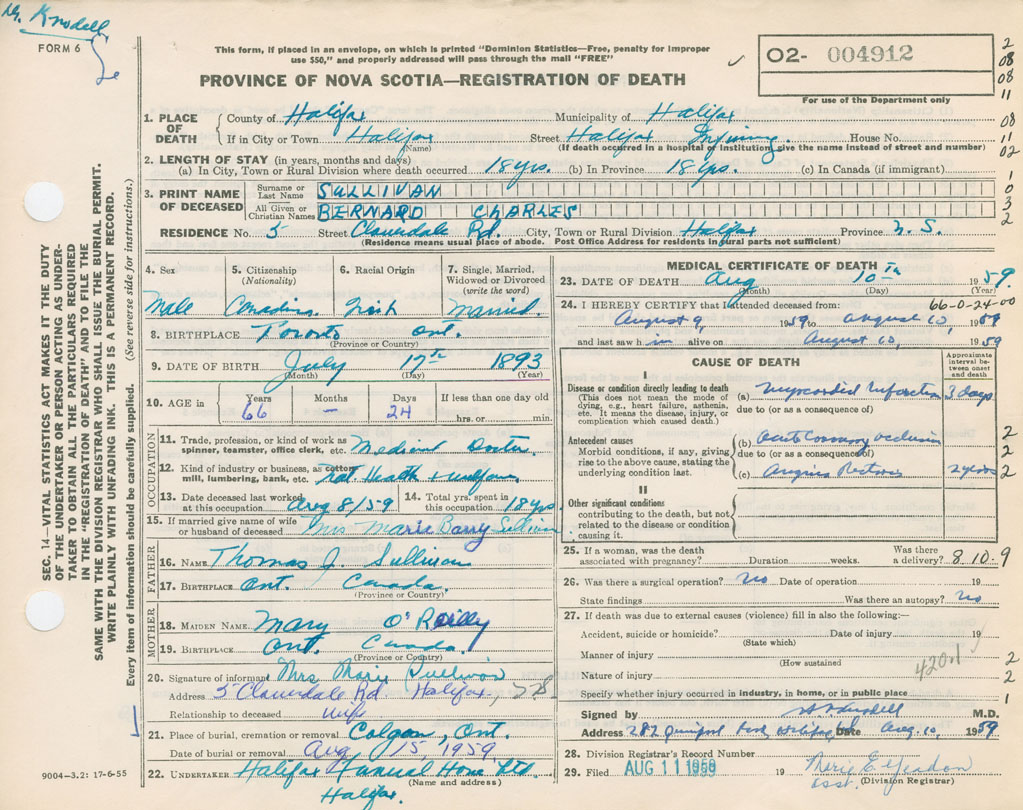 Dr. Knodell
FORM 6
This form, if placed in an envelope, on which is printed "Dominion Statistics—Free, penalty for improper
use $50," and properly addressed will pass through the mail "FREE"
PROVINCE OF NOVA SCOTIA—REGISTRATION OF DEATH
02- 004912
For use of the Department only
2
08
08
11
08
11
02
1
0
3
2
SEC. 14—VITAL STATISTICS ACT MAKES IT THE DUTY
OF THE UNDERTAKER OR PERSON ACTING AS UNDER-
TAKER TO OBTAIN ALL THE PARTICULARS REQUIRED
IN THE "REGISTRATION OF DEATH" AND TO FILE THE
SAME WITH THE DIVISION REGISTRAR WHO SHALL ISSUE THE BURIAL PERMIT.
WRITE PLAINLY WITH UNFADING INK. THIS IS A PERMANENT RECORD.
Every item of information should be carefully supplied. (See reverse side for instructions.)
1. PLACE OF DEATH
County of Halifax Municipality of Halifax
If in City or Town Halifax Street Halifax Infirmary House No.
(Name) (If death occurred in a hospital or institution, give the name instead of street and number)
2. LENGTH OF STAY (in years, months and days)
(a) In City, Town or Rural Division where death occurred 18 yrs. (b) In Province 18 yrs. (c) In Canada (if immigrant)
3. PRINT NAME OF DECEASED
Surname or Last Name SULLIVAN
All Given or Christian Names BERNARD CHARLES
RESIDENCE No. 5 Street Clauerdale Rd. City, Town or Rural Division Halifax Province N. S.
(Residence means usual place of abode. Post Office Address for residents in rural parts not sufficient)
4. Sex
Male
5. Citizenship (Nationality)
Canadian
6. Racial Origin
Irish
7. Single, Married, Widowed or Divorced (write the word)
Married
8. BIRTHPLACE Toronto Ont.
(Province or Country)
9. DATE OF BIRTH July 17th 1893
(Month) (Day) (Year)
10. AGE in Years Months Days If less than one day
66 – 24 hrs. or min.
OCCUPATION
11. Trade, profession, or kind of work as
spinner, teamster, office clerk, etc. Medical Doctor
12. Kind of industry or business, as cotton
mill, lumbering, bank, etc. Nat. Health & Welfare
13. Date deceased last worked
at this occupation Aug 8/59
14. Total yrs. spent in
this occupation 18 yrs.
15. If married give name of wife
or husband of deceased Mrs Marie Barry Sullivan
FATHER
16. NAME Thomas J. Sullivan
17. BIRTHPLACE Ont. Canada.
(Province or Country)
MOTHER
18. MAIDEN NAME Mary O'Reilly
19. BIRTHPLACE Ont. Canada.
(Province or Country)
20. Signature of informant Mrs Marie Sullivan
Address 5 Clauerdale Rd Halifax,
Relationship to deceased wife
21. Place of burial, cremation or removal Colgan, Ont.
Date of burial or removal Aug 15, 1959
22. UNDERTAKER Halifax Funual Home Ltd.
(Name and address)
Halifax.
9004-3.2: 17-6-55
MEDICAL CERTIFICATE OF DEATH
23. DATE OF DEATH Aug 10th 1959
(Month) (Day) (Year)
66-0-24-00
24. I HEREBY CERTIFY that I attended deceased from:
August 9, 1959 to August 10, 1959
and last saw him alive on August 10, 1959
CAUSE OF DEATH
Approximate interval between onset and death
I
Disease or condition directly leading to death
(This does not mean the mode of
dying, e.g., heart failure, asthenia,
etc. It means the disease, injury, or
complication which caused death.)
(a) Myocardial infarction 2 days
due to (or as a consequence of)
Antecedent causes
Morbid conditions, if any, giving
rise to the above cause, stating the
underlying condition last.
(b) Acute Coronary occlusion
due to (or as a consequence of)
(c) Angina Pectoris
2
2
2
2
II
Other significant conditions
contributing to the death, but not
related to the disease or condition
causing it.
25. If a woman, was the death
associated with pregnancy? Duration weeks. Was there a delivery?
8.10.9
26. Was there a surgical operation? No Date of operation 19
State findings Was there an autopsy? No
27. If death was due to external causes (violence) fill in also the following:—
Accident, suicide or homicide? Date of injury 19
(State which)
Manner of injury
(How sustained
420.1
2
Nature of injury
2
Specify whether injury occurred in industry, in home, or in public place
1
Signed by Knodell M.D.
Address 282 Halifax Date Aug. 10, 1959
28. Division Registrar's Record Number
29. Filed AUG 11 1959 19 Marie E. Yeadon
asst. (Division Registrar)